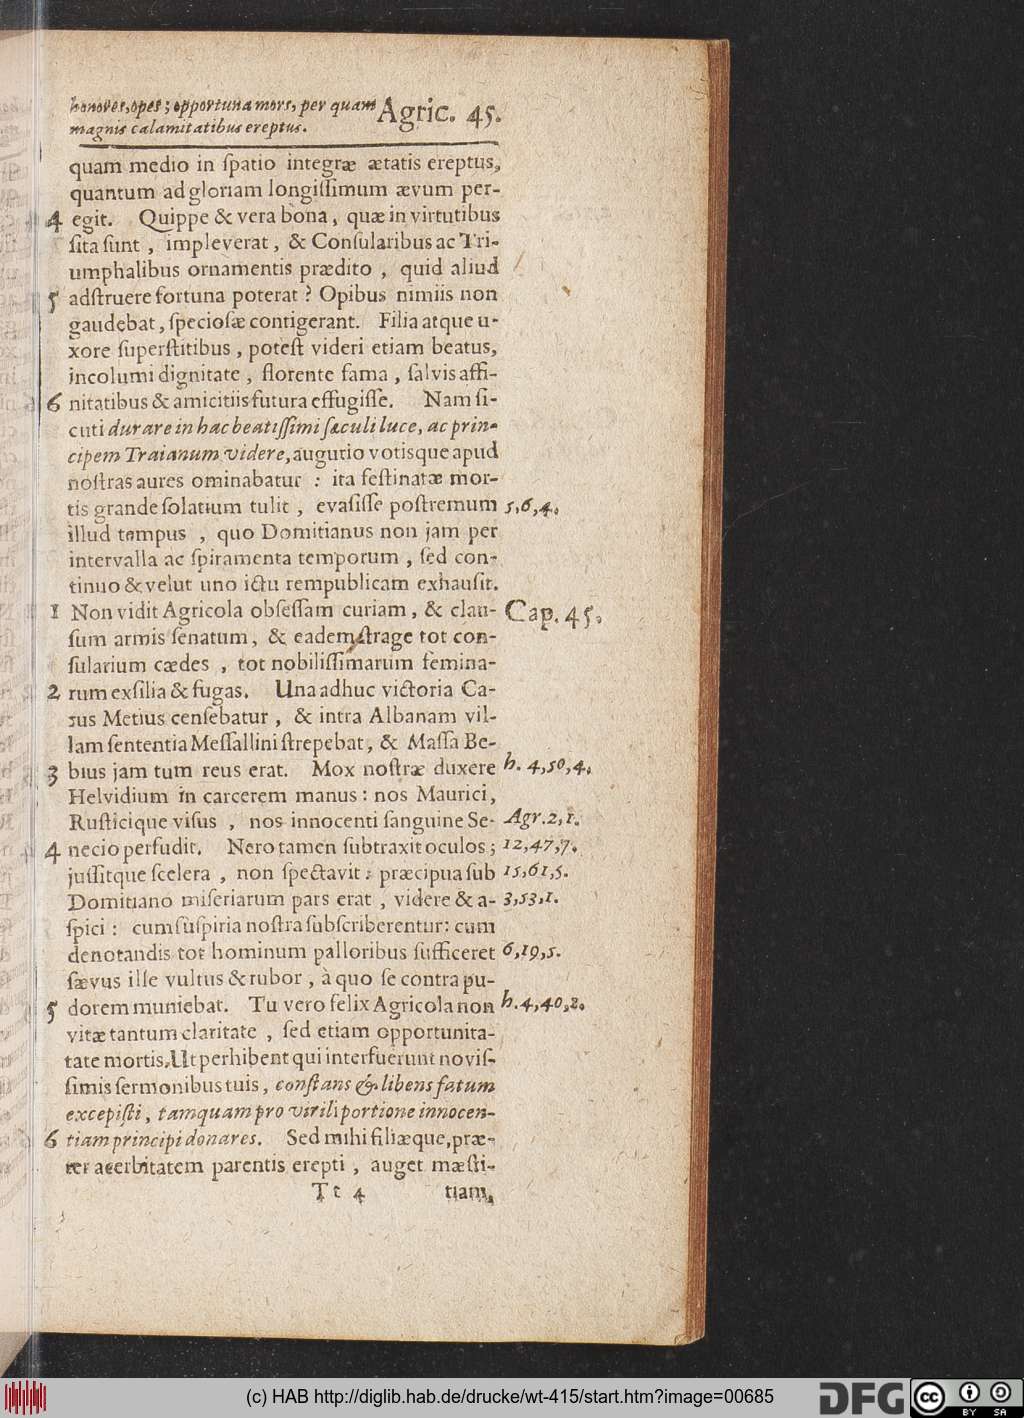 honores, opes; opportuna mors, per quam Agric. 45.
magnis calamitatibus ereptus.
quam medio in ſpatio integræ ætatis ereptus,
quantum ad gloriam longiſſimum ævum per-
4 egit. Quippe & vera bona, quæ in virtutibus
ſita ſunt, impleverat, & Conſularibus ac Tri-
umphalibus ornamentis prædito, quid aliud
5 adſtruere fortuna poterat? Opibus nimiis non
gaudebat, ſpecioſæ contigerant. Filia atque u-
xore ſuperſtitibus, poteſt videri etiam beatus,
incolumi dignitate, florente fama, ſalvis affi-
6 nitatibus & amicitiis futura effugiſſe. Nam ſi-
cuti durare in hac beatiſſimi ſæculi luce, ac prin-
cipem Traianum videre, augurio votisque apud
noſtras aures ominabatur: ita feſtinatæ mor-
tis grande ſolatium tulit, evaſiſſe poſtremum 5,6,4.
illud tempus, quo Domitianus non jam per
intervalla ac ſpiramenta temporum, ſed con-
tinuo & velut uno ictu rempublicam exhauſit.
1 Non vidit Agricola obſeſſam curiam, & clau- Cap. 45.
ſum armis ſenatum, & eadem ſtrage tot con-
ſularium cædes, tot nobiliſſimarum femina-
2 rum exſilia & fugas. Una adhuc victoria Ca-
rus Metius cenſebatur, & intra Albanam vil-
lam ſententia Meſſallini ſtrepebat, & Maſſa Be-
3 bius jam tum reus erat. Mox noſtræ duxere h. 4,50,4.
Helvidium in carcerem manus: nos Maurici,
Ruſticique viſus, nos innocenti ſanguine Se- Agr. 2,1.
4 necio perfudit. Nero tamen ſubtraxit oculos; 12,47,7.
juſſitque ſcelera, non ſpectavit: præcipua ſub 15,61,5.
Domitiano miſeriarum pars erat, videre & a- 3,53,1.
ſpici: cum ſuſpiria noſtra ſubſcriberentur: cum
denotandis tot hominum palloribus ſufficeret 6,19,5.
ſævus ille vultus & rubor, à quo ſe contra pu-
5 dorem muniebat. Tu vero felix Agricola non h. 4,40,2.
vitæ tantum claritate, ſed etiam opportunita-
tate mortis. Ut perhibent qui interfuerunt noviſ-
ſimis ſermonibus tuis, conſtans & libens fatum
excepiſti, tamquam pro virili portione innocen-
6 tiam principi donares. Sed mihi filiæque, præ-
ter acerbitatem parentis erepti, auget mæſti-
Tt 4 tiam,
(c) HAB http://diglib.hab.de/drucke/wt-415/start.htm?image=00685
DFG
cc BY SA